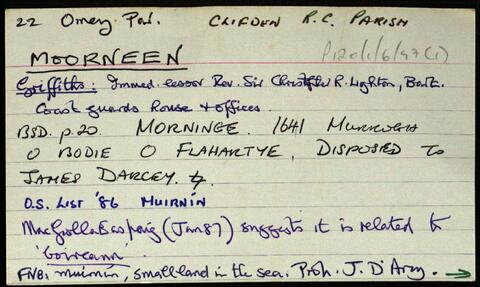 22 Omey Par. CLIFDEN R.C. PARISH
P120/1/6/97(1)
MOORNEEN
Griffiths: Immed. lessor Rev. Sir Christopher R. Lighton, Bart.
Coast guards house + offices.
BSD. p.20. MORNINEE. 1641 MURROGH
O BODIE O FLAHARTYE, DISPOSED to
JAMES DARCEY.
O.S. LIST '86 MUIRNÍN
MacGiolla Easpaig (Jan 87) suggests it is related to
'boireann'.
FNB: muirnín, small land in the sea. Proh. J. D'Arcy. →